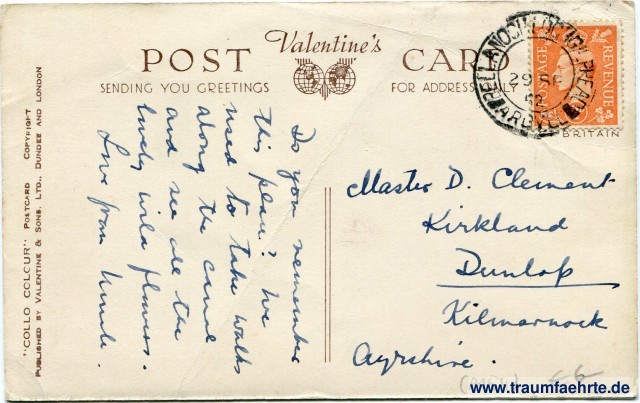 Valentine's
POST CARD
SENDING YOU GREETINGS
FOR ADDRESS ONLY
Do you remember
this place? We
used to take walks
along the canal
and see all the
lovely wild flowers.
Love from
Master D. Clement
Kirkland
Dunlop
Kilmarnock
Ayrshire.
POSTAGE
REVENUE
29 SE
52
BRITAIN
"COLLO COLOUR" POSTCARD COPYRIGHT
PUBLISHED BY VALENTINE & SONS, LTD., DUNDEE AND LONDON
www.traumfaehrte.de